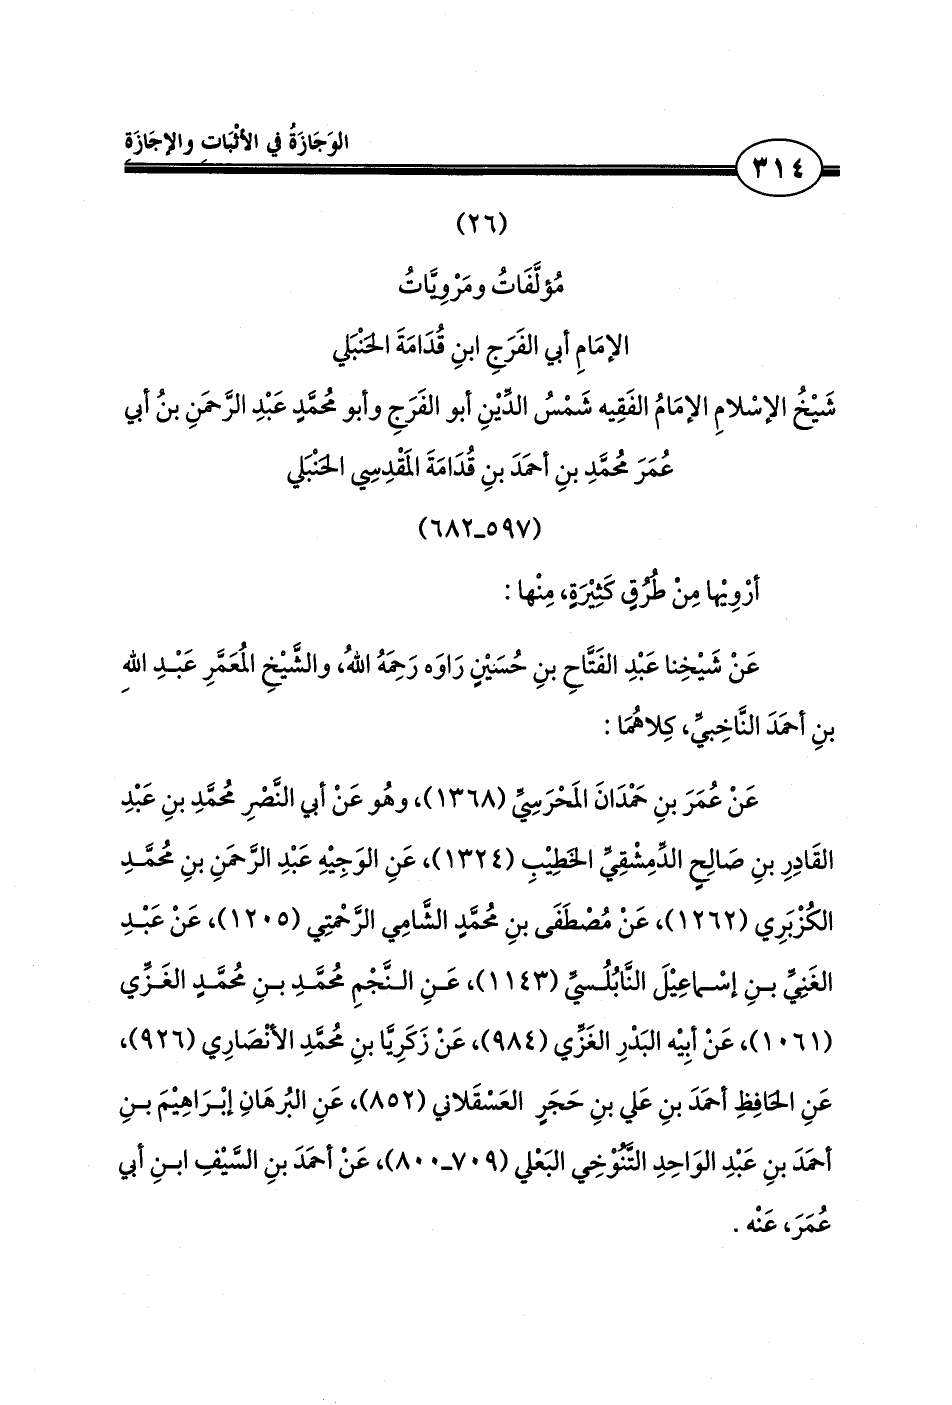 الوَجَازَةُ في الأثْبَاتِ والإجَازَةِ
٣١٤
(٢٦)
مُؤلَّفَاتُ ومَرْوِيَّاتُ
الإمَامِ أبي الفَرَجِ ابنِ قُدَامَةَ الحَنْبَلي
شَيْخُ الإسْلامِ الإمَامُ الفَقِيه شَمْسُ الدِّيْنِ أبو الفَرَجِ وأبو مُحمَّدٍ عَبْدِ الرَّحمَنِ بنُ أبي
عُمَرَ مُحمَّدِ بنِ أحمَدَ بنِ قُدَامَةَ المَقْدِسِي الحَنْبَلي
(٥٩٧ـ٦٨٢)
أرْوِيْها مِنْ طُرُقٍ كَثِيْرَةٍ، مِنْها :
عَنْ شَيْخِنا عَبْدِ الفَتَّاحِ بنِ حُسَيْنٍ رَاوَه رَحِمَهُ اللهُ، والشَّيْخِ المُعَمَّرِ عَبْدِ اللهِ
بنِ أحمَدَ النَّاخِبيِّ، كِلاهُمَا :
عَنْ عُمَرَ بنِ حَمْدَانَ المَحْرَسِيِّ (١٣٦٨)، وهُو عَنْ أبي النَّصْرِ مُحمَّدِ بنِ عَبْدِ
القَادِرِ بنِ صَالِحٍ الدِّمِشْقِيِّ الخَطِيْبِ (١٣٢٤)، عَنِ الوَجِيْهِ عَبْدِ الرَّحمَنِ بنِ مُحمَّدٍ
الكُزْبَرِي (١٢٦٢)، عَنْ مُصْطَفَى بنِ مُحمَّدٍ الشَّامِي الرَّحْمَتِي (١٢٠٥)، عَنْ عَبْدِ
الغَنِيِّ بنِ إسْماعِيْلَ النَّابُلُسيِّ (١١٤٣)، عَنِ النَّجْمِ مُحمَّدِ بنِ مُحمَّدٍ الغَزِّي
(١٠٦١)، عَنْ أبِيْه البَدْرِ الغَزِّي (٩٨٤)، عَنْ زَكَرِيَّا بنِ مُحمَّدٍ الأنْصَارِي (٩٢٦)،
عَنِ الحَافِظِ أحمَدَ بنِ عَلي بنِ حَجَرٍ العَسْقَلاني (٨٥٢)، عَنِ البُرهَانِ إبْرَاهِيْمَ بنِ
أحمَدَ بنِ عَبْدِ الوَاحِدِ التَّنُوْخِي البَعْلي (٧٠٩ـ٨٠٠)، عَنْ أحمَدَ بنِ السَّيْفِ ابنِ أبي
عُمَرَ، عَنْه .